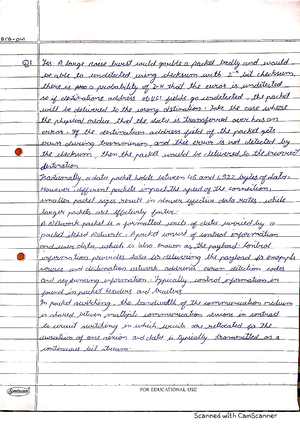 BCS-041
Q1 Yes: A large noise burst could garble a packet badly and would
be able to undetected using checksum with 2^-k bit checksum,
there is a probability of 2-k that the error is undetected
so if destinations address of VCI fields go undetected, the packet
will be delivered to the wrong destination. Take the case where
the physical media that the data is transferred over has an
error. If the destination address field of the packet gets
error during transmission, and this error is not detected by
the checksum, then the packet would be delivered to the incorrect
destination.
Traditionally a data packet holds between 46 and 1,522 bytes of data.
However different packets impact the speed of the connection,
smaller packet sizes result in slower effective data rates, while
larger packets are effectively faster.
A network packet is a formatted unit of data carried by a
packet network. A packet consist of control information
and user data, which is also known as the payload. Control
information provides data for delivering the payload for example
source and destination network addresses, error detection codes
and sequencing information. Typically, control information in
found in packet headers and trailers.
In packet switching, the bandwidth of the communication medium
is shared between multiple communication sessions in contrast
to circuit switching in which circuits are allocated for the
duration of one session and data is typically transmitted as a
continuous bit stream.
FOR EDUCATIONAL USE
Scanned with CamScanner